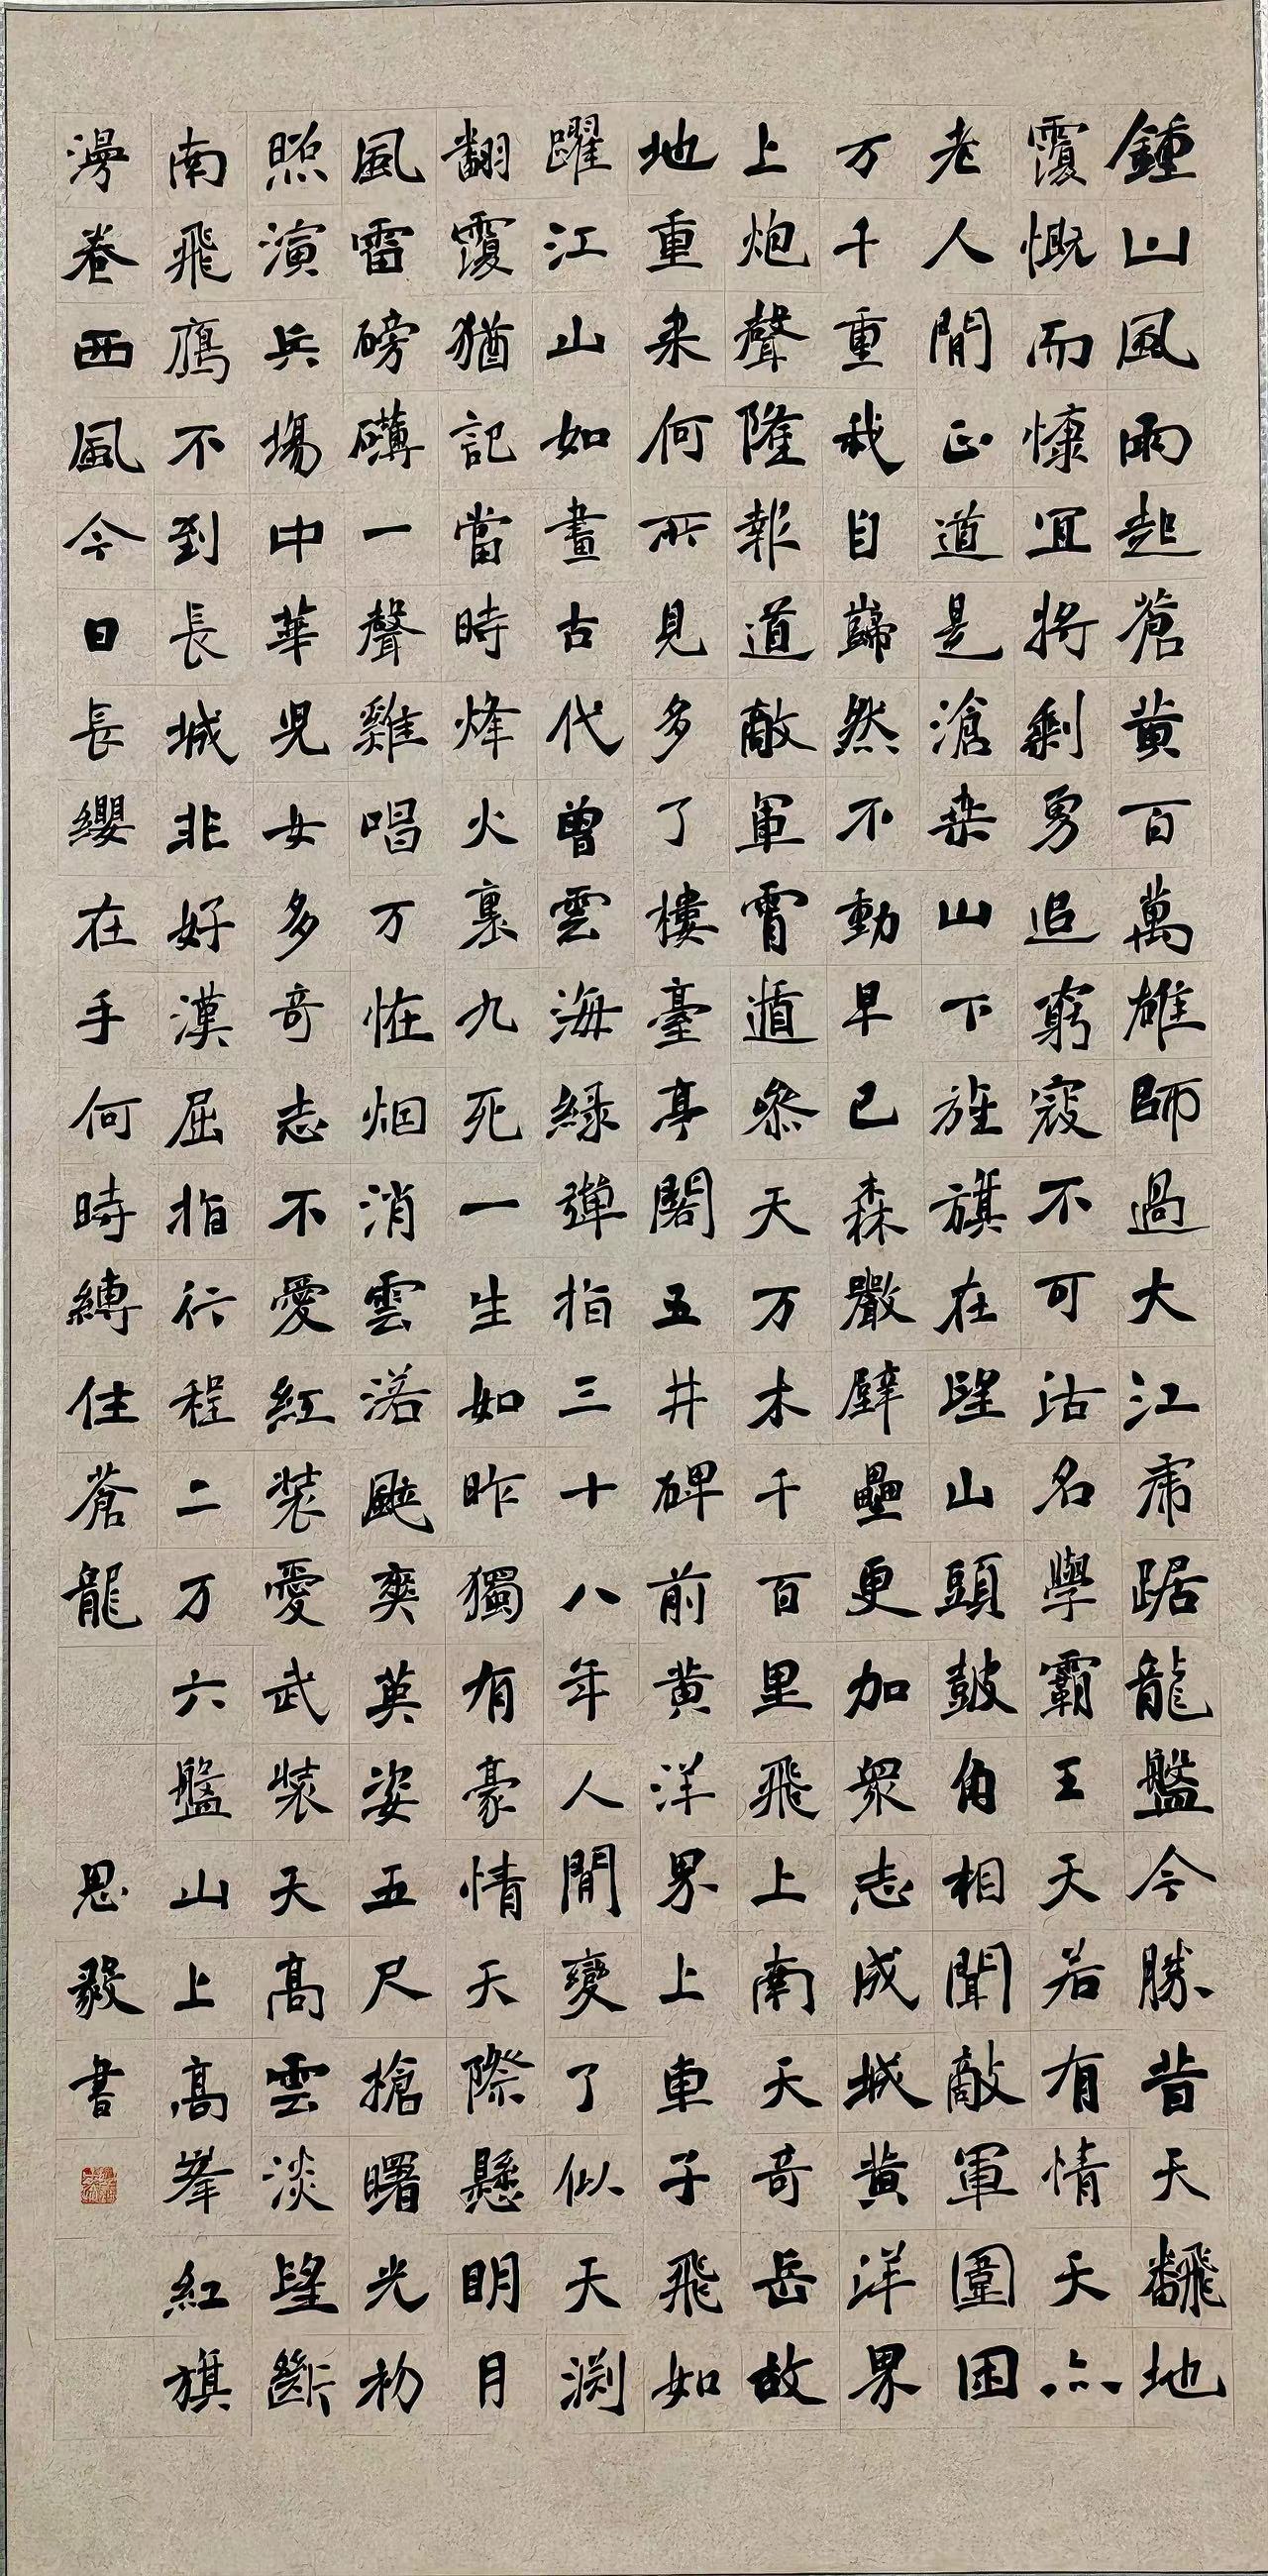 鍾山風雨起蒼黄百萬雄師過大江虎踞龍盤今勝昔天翻地
覆慨而慷宜將剩勇追窮寇不可沽名學霸王天若有情天亦
老人間正道是滄桑山下旌旗在望山頭鼓角相聞敵軍圍困
万千重我自巋然不動早已森嚴壁壘更加衆志成城黄洋界
上炮聲隆報道敵軍宵遁參天万木千百里飛上南天奇岳故
地重来何所見多了樓臺亭閣五井碑前黄洋界上車子飛如
躍江山如畫古代曾雲海緑彈指三十八年人間變了似天淵
翻覆猶記當時烽火裏九死一生如昨獨有豪情天際懸明月
風雷磅礴一聲雞唱万怪烟消雲落颯爽英姿五尺槍曙光初
照演兵場中華兒女多奇志不愛紅裝愛武裝天高雲淡望斷
南飛鴈不到長城非好漢屈指行程二万六盤山上高峯紅旗
漫卷西風今日長纓在手何時縛住蒼龍
思毅書